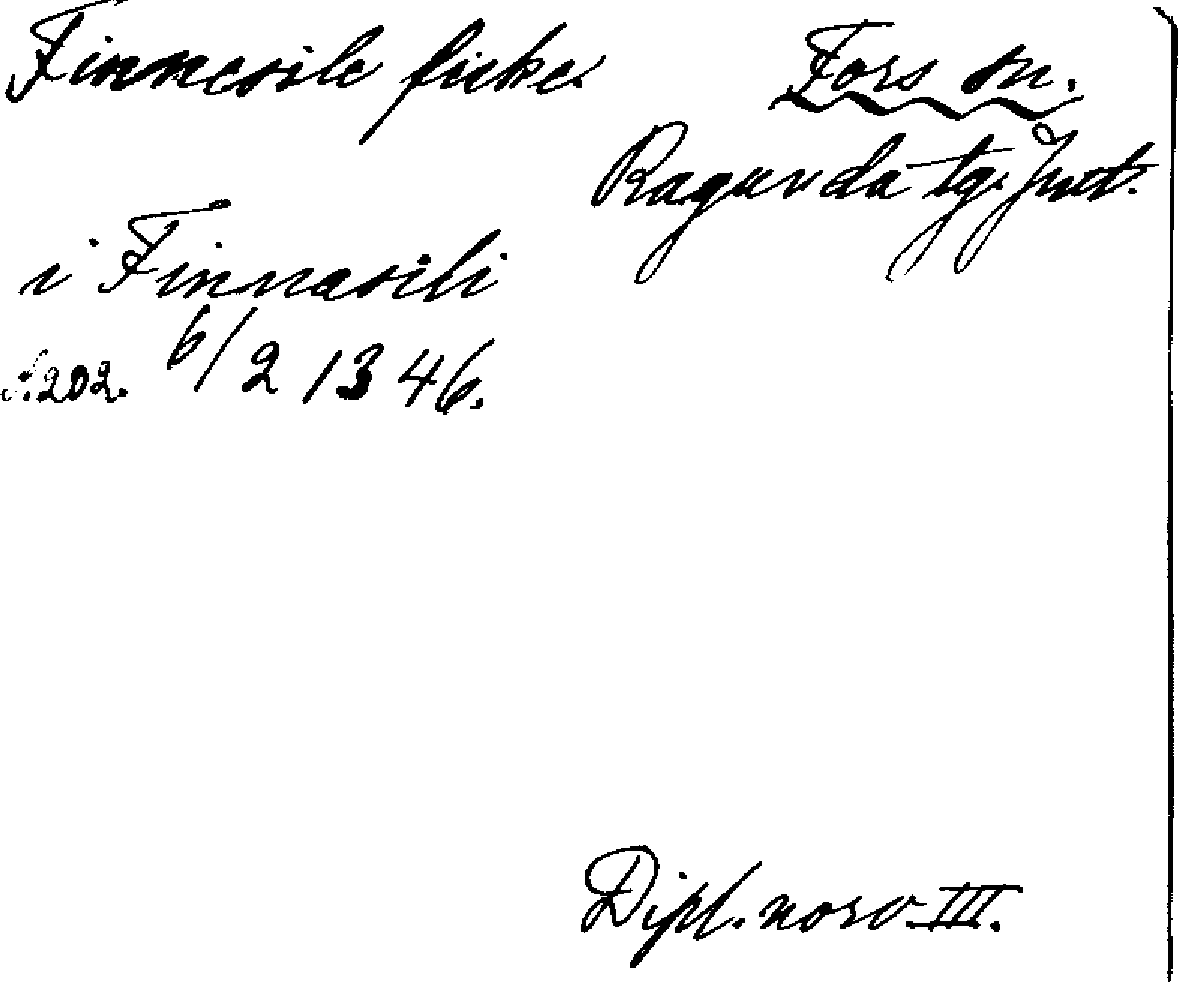 Finnesile fiske Fors sn.
Ragunda tg. Jmt.
i Finnasili
s. 202. 6/2 1346.
Dipl. norv. III.